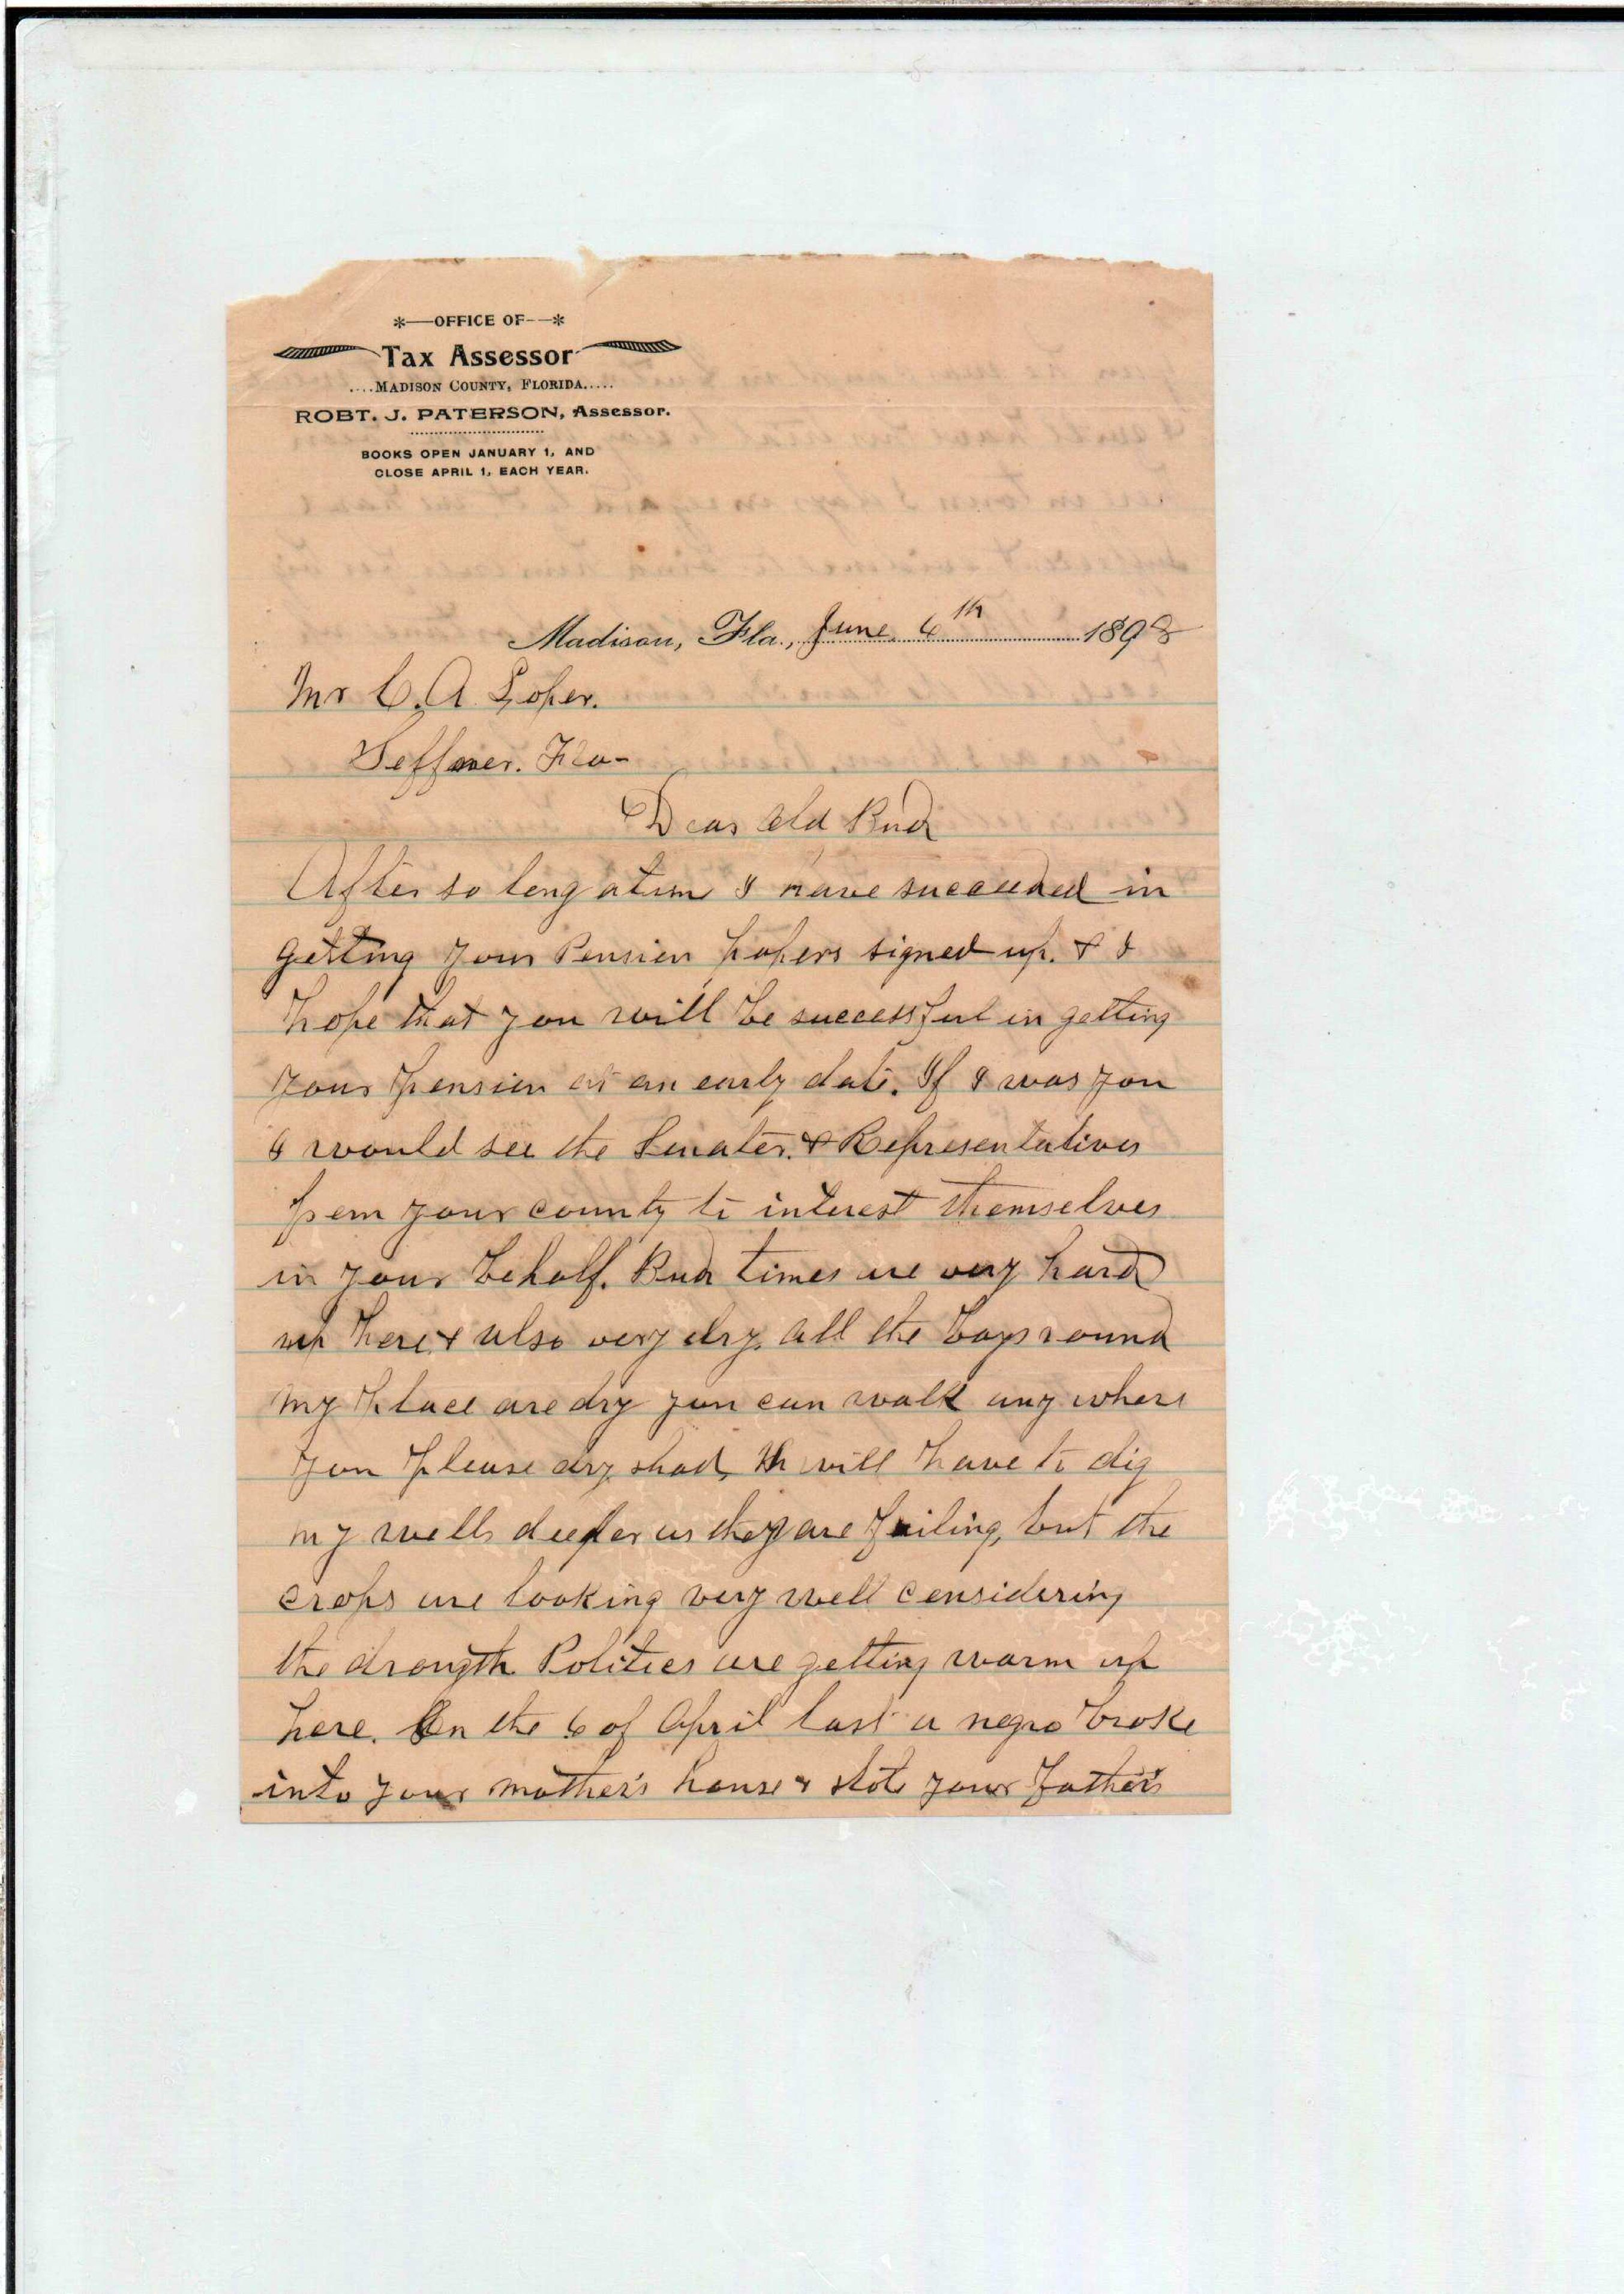 *—OFFICE OF—*
Tax Assessor
....MADISON COUNTY, FLORIDA.....
ROBT. J. PATERSON, Assessor.
BOOKS OPEN JANUARY 1, AND
CLOSE APRIL 1, EACH YEAR.
Madison, Fla., June 6th 1898
Mr C. A. Loper.
Seffner. Fla-
Dear Old Bud
After so long a time I have succeeded in
getting your Pension papers signed up. & I
hope that you will be successful in getting
your pension at an early date. If I was you
I would see the Senator. & Representatives
from your county to interest themselves
in your behalf. Bud times are very hard
up here & also very dry. all the bays round
my place are dry you can walk any where
you please dry shod, will have to dig
my wells deeper as they are failing, but the
crops are looking very well considering
the drougth. Politics are getting warm up
here. On the 6 of April last a negro broke
into your mother's house & stole your father's